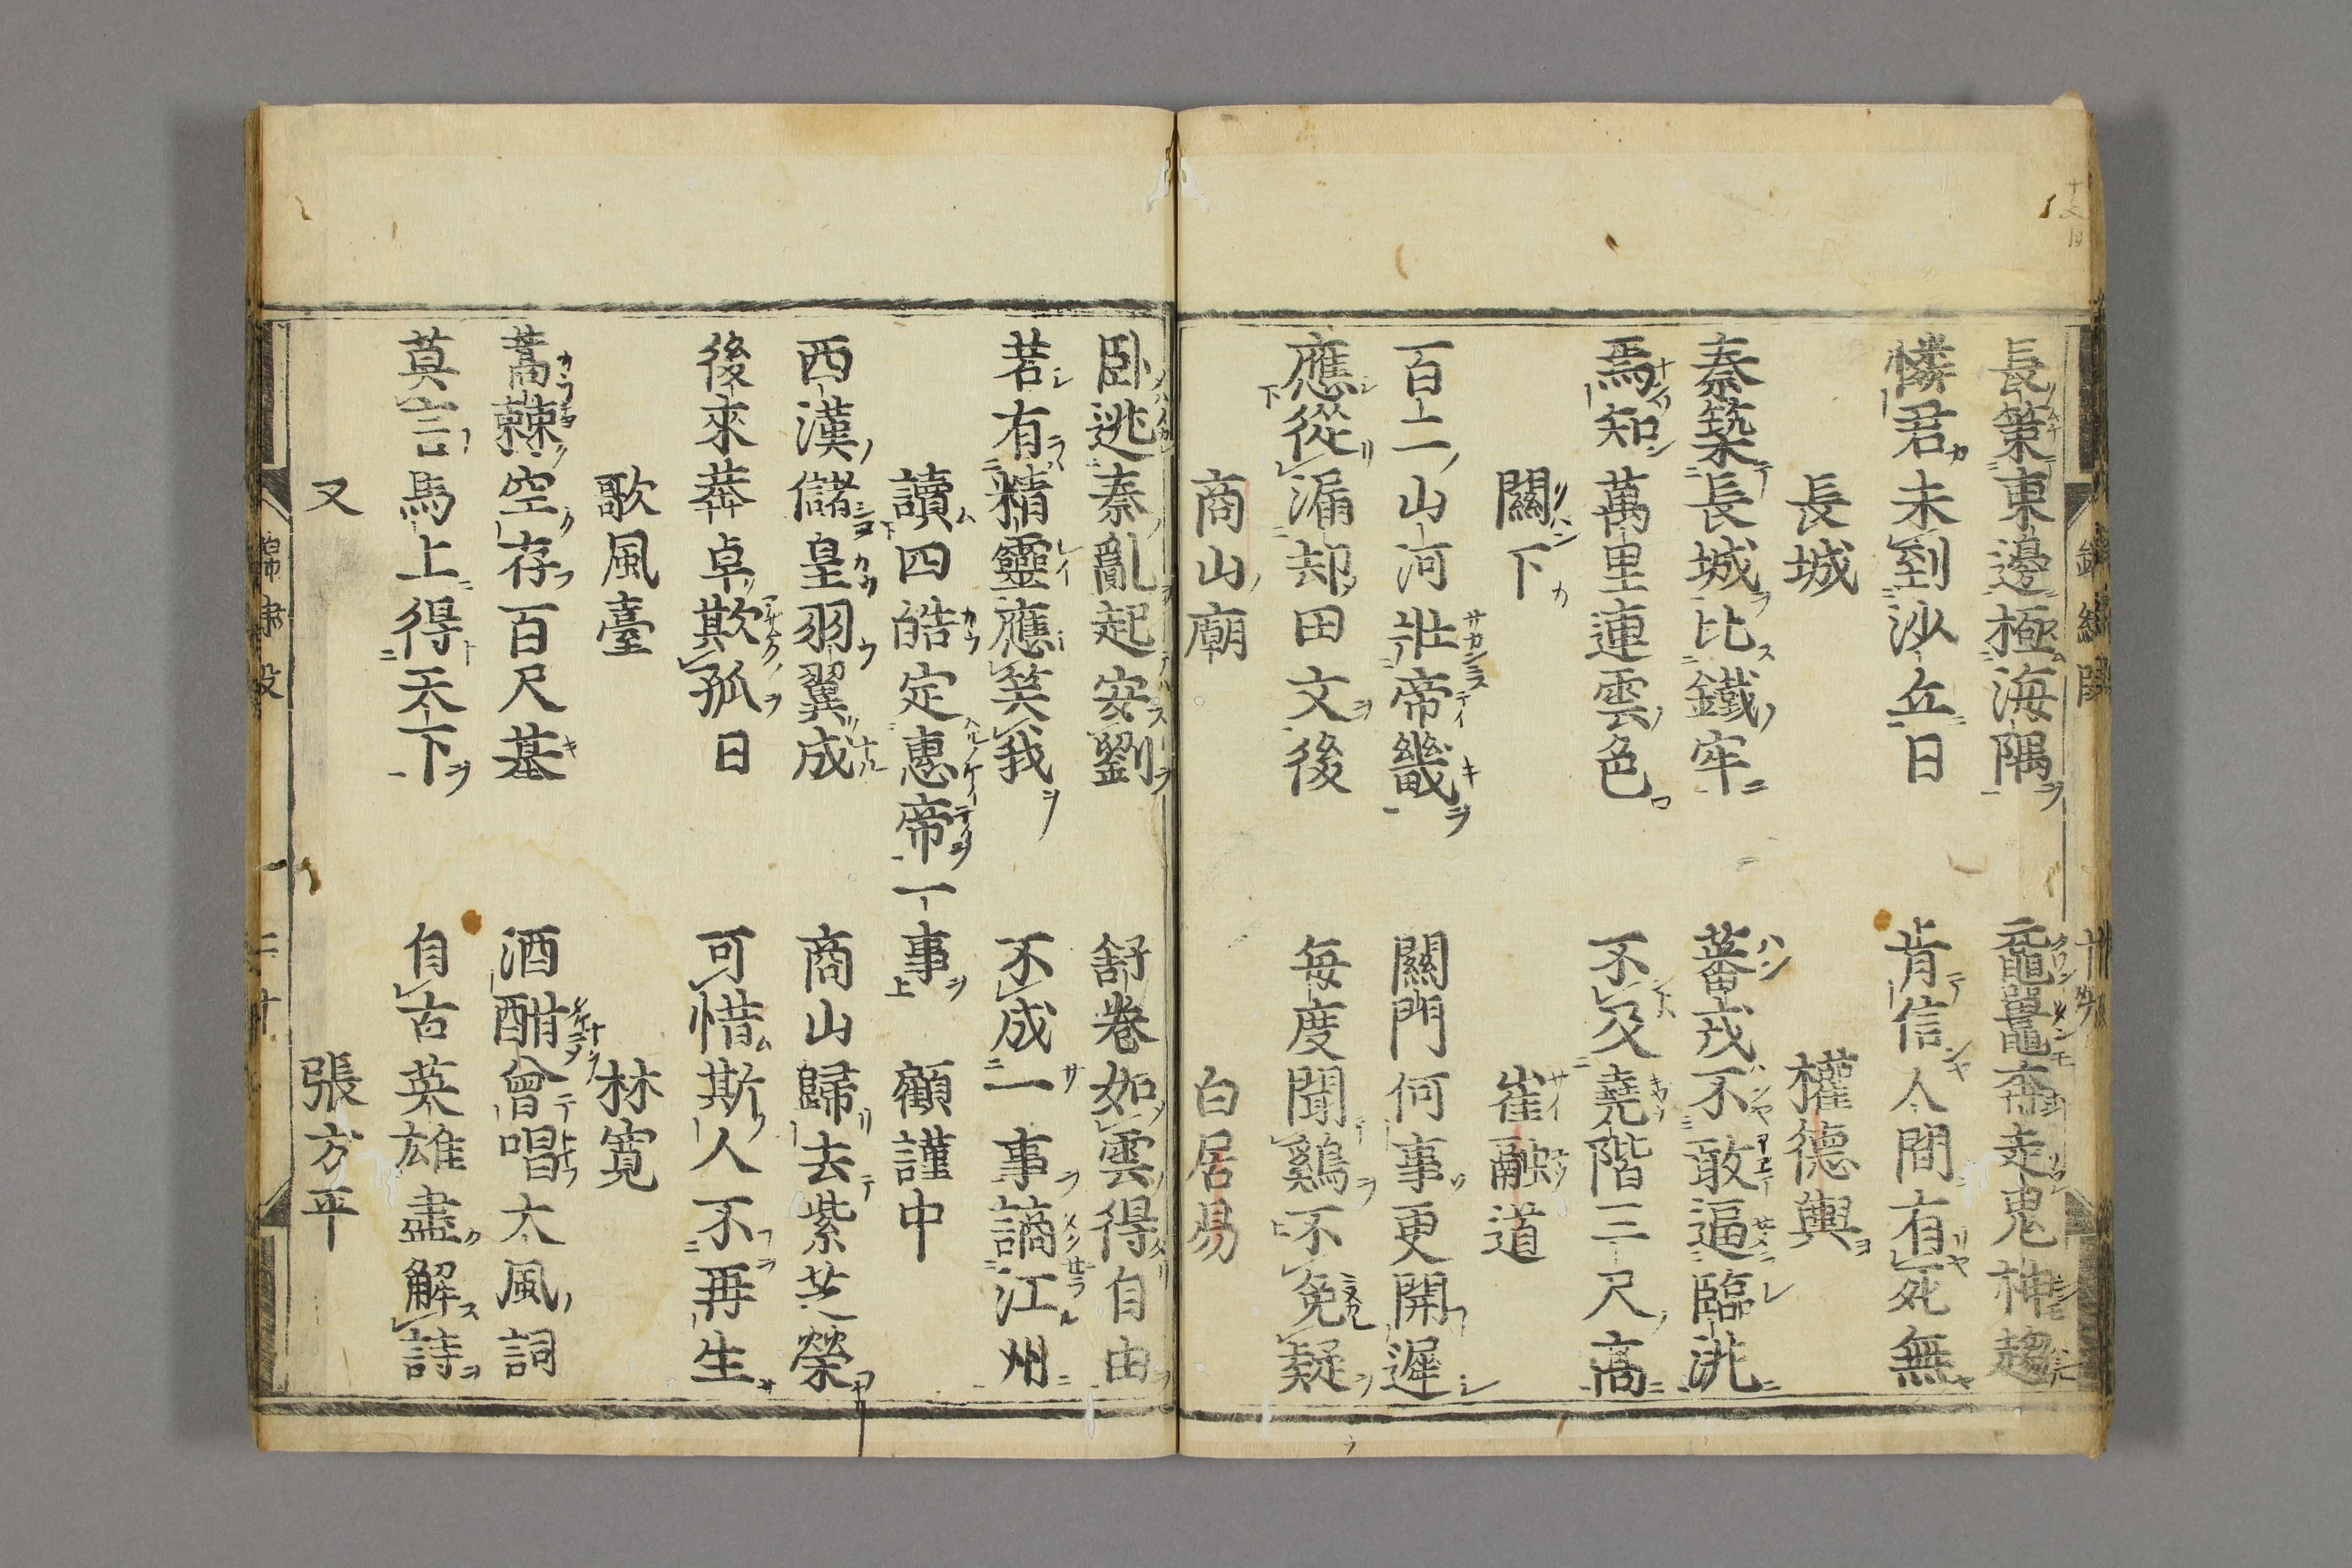 長策東邊極海隅　黿鼉奔走鬼神趨
憐君未到沙丘日　肯信人間有死無
長城　權德輿
秦築長城比鐵牢　蕃戎不敢逼臨洮
焉知萬里連雲色　不及堯階三尺高
關下　崔融道
百二山河壯帝畿　關門何事更開遲
應從漏却田文後　每度聞鷄不免疑
商山廟　白居易
卧逃秦亂起安劉　舒卷如雲得自由
若有精靈應笑我　不成一事謫江州
讀四皓定惠帝一事　顧謹中
西漢儲皇羽翼成　商山歸去紫芝榮
後來莽卓欺孤日　可惜斯人不再生
歌風臺　林寬
蒿棘空存百尺基　酒酣曾唱大風詞
莫言馬上得天下　自古英雄盡解詩
又　張方平